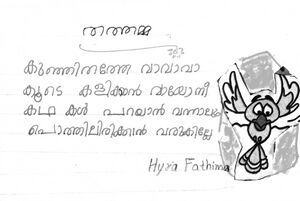 തത്തമ്മ
കുഞ്ഞിതത്തേ വാവാവാ
കൂടെ കളിക്കാൻ വായോനീ
കഥ കൾ പറയാൻ വന്നാലും
പൊത്തിലിരിക്കാൻ വരുകില്ലേ
Hyra Fathima